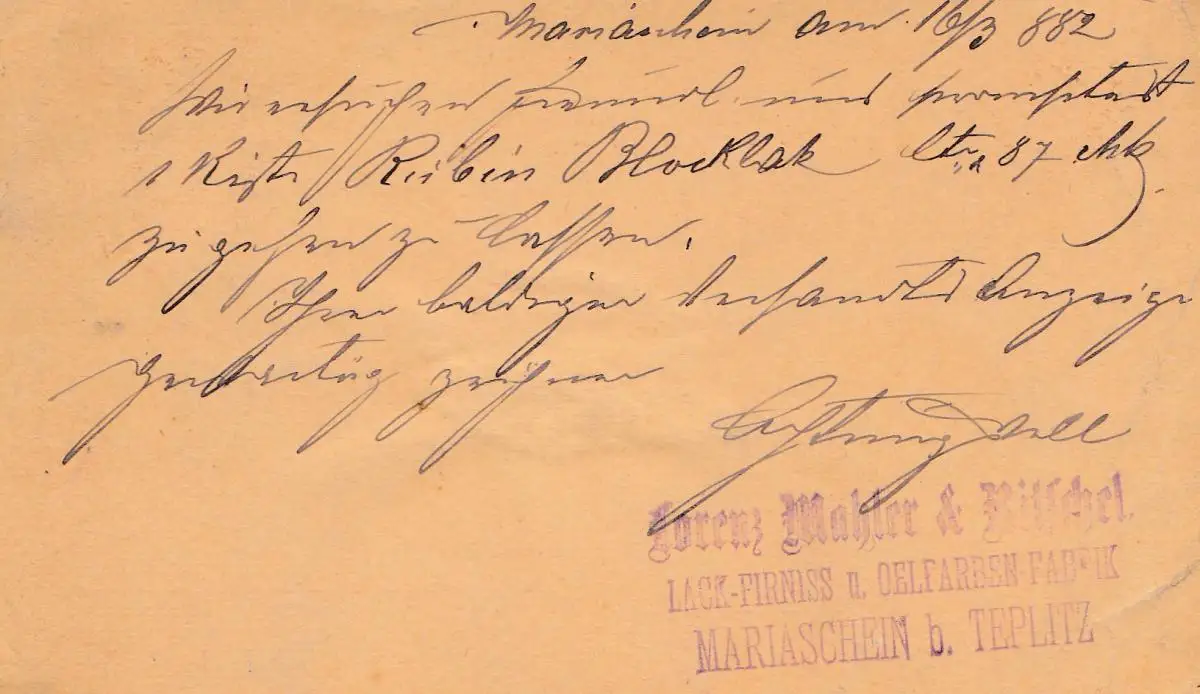 Mariaschein am 16/3 882
Wir ersuchen freundl. und promptest
1 Kiste Rubin Blocklak 87
zugehen zu lassen.
Ihrer baldigen Versandts Anzeige
gewärtig zeichnen
Achtungsvoll
Lorenz Mahler & Nitschel.
LACK-FIRNISS u. OELFARBEN FABRIK
MARIASCHEIN b. TEPLITZ